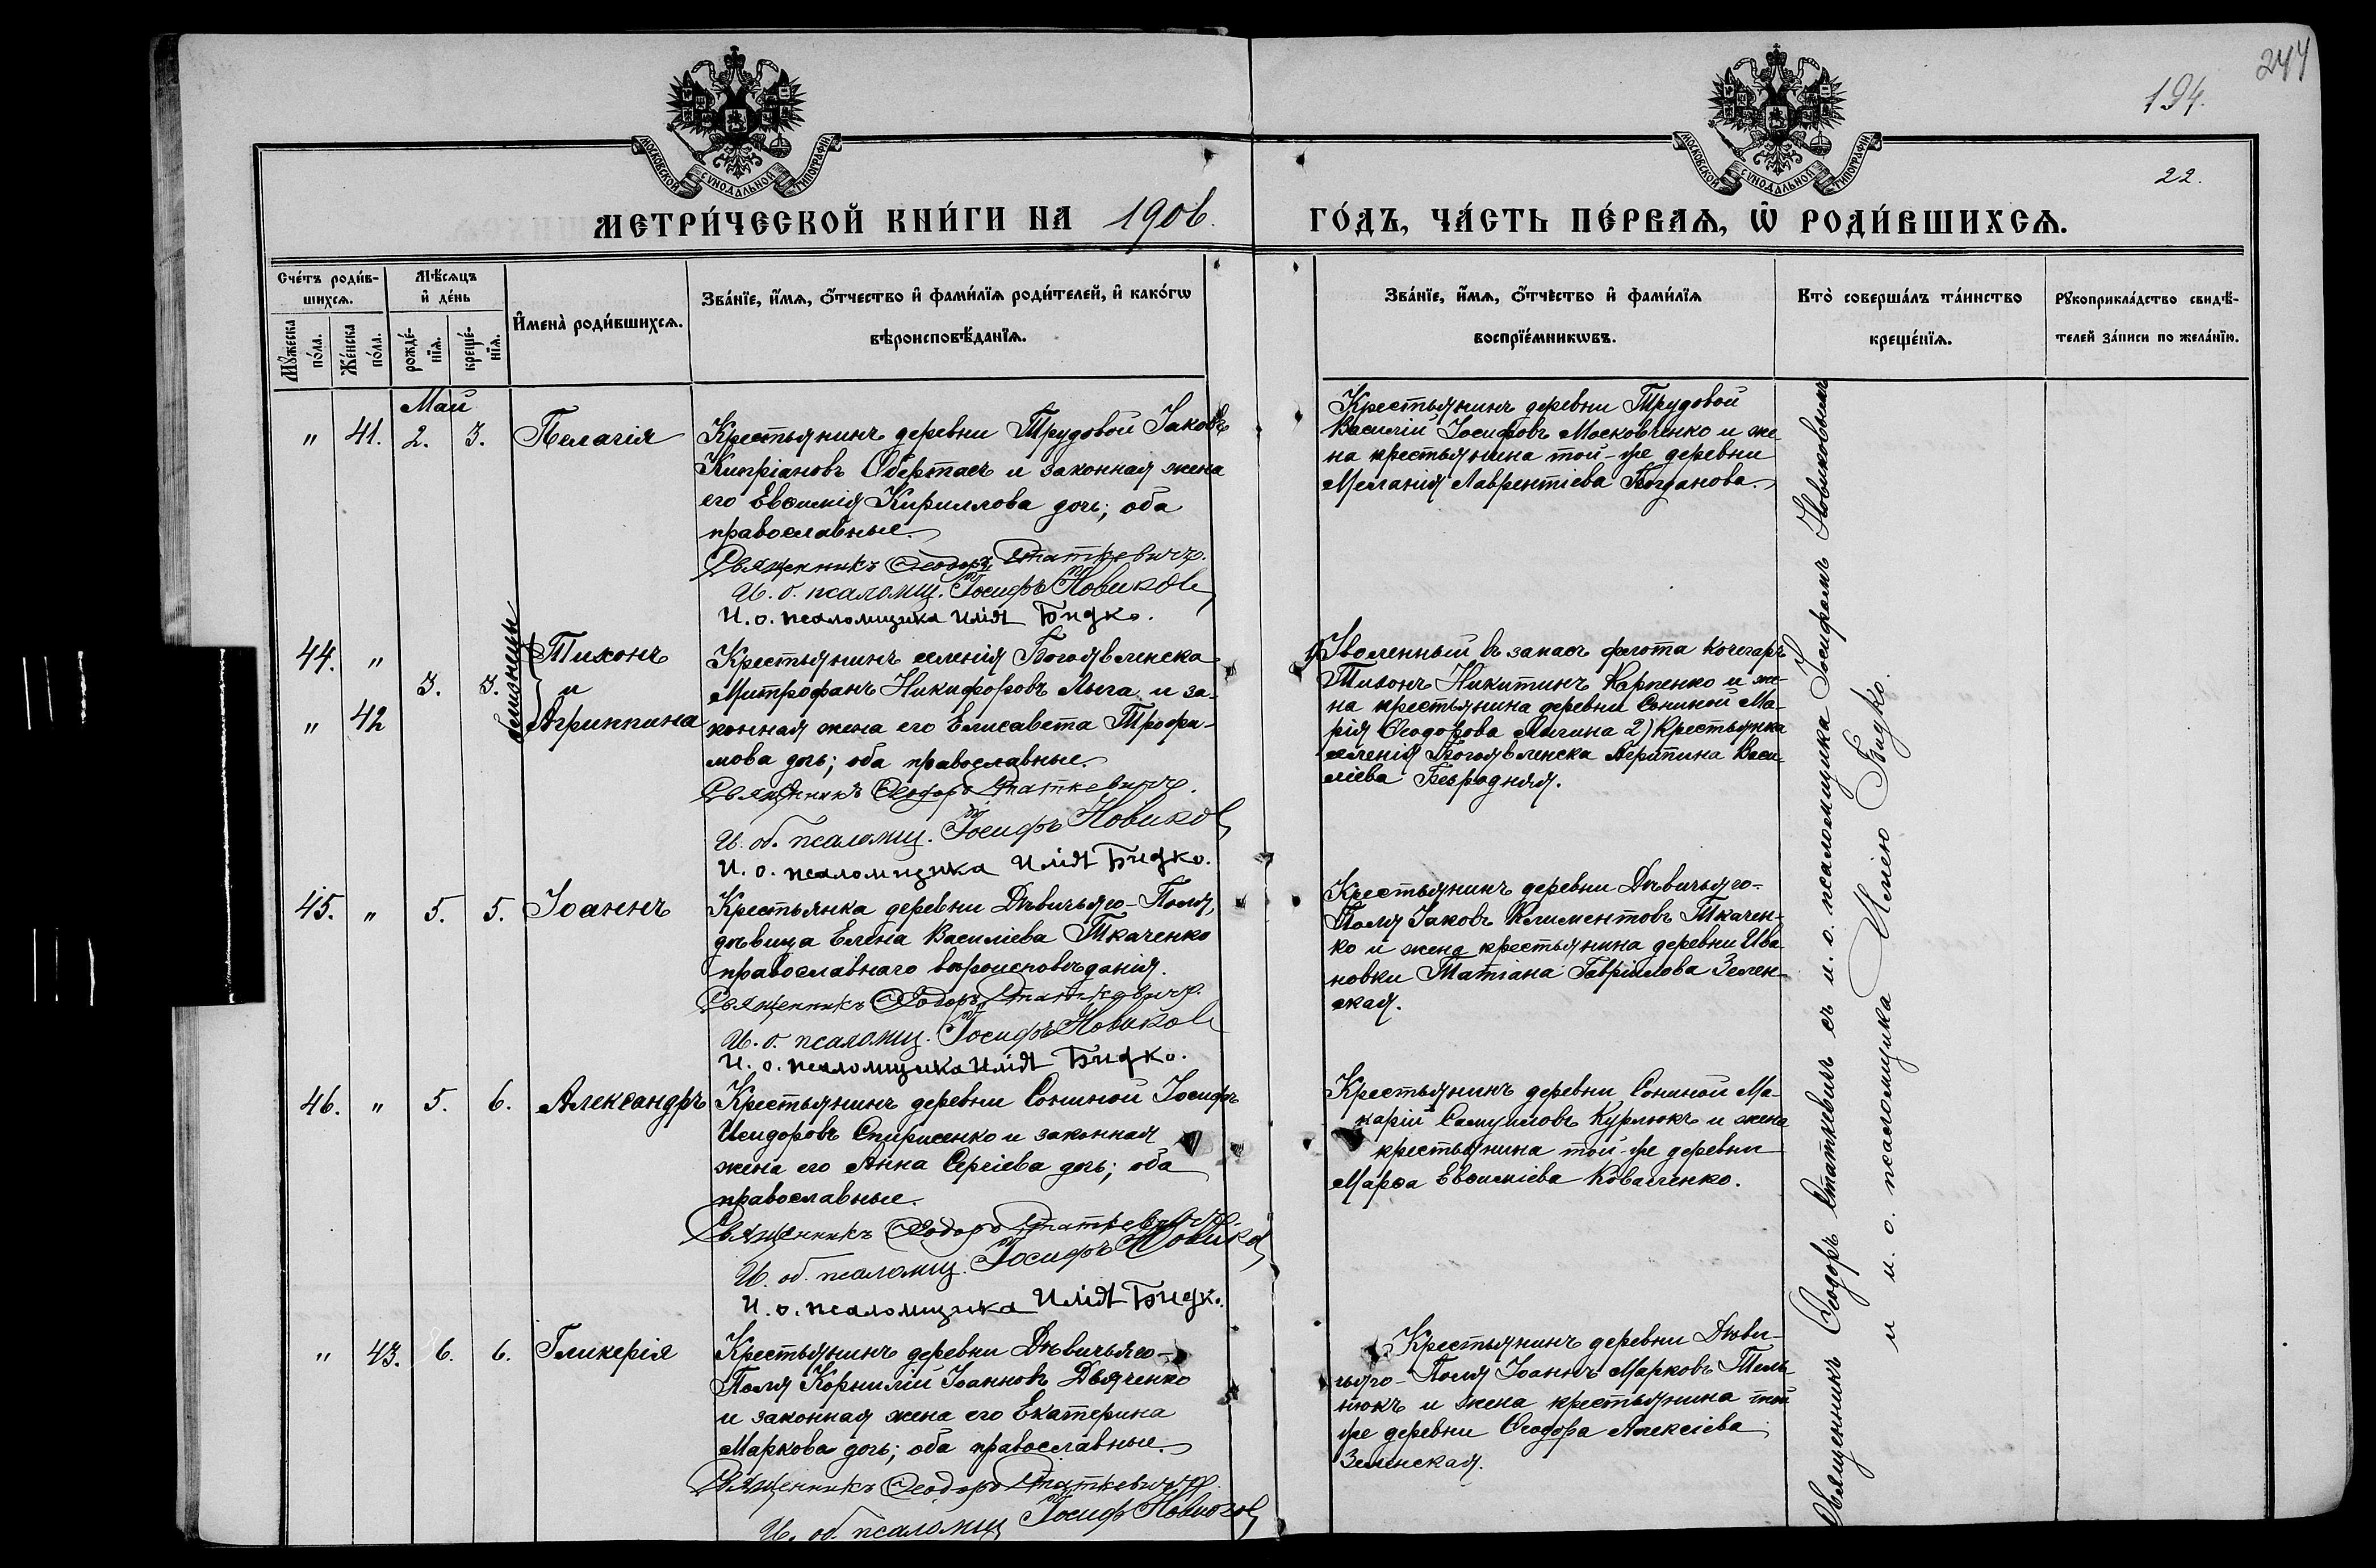 244
194.
22.
МОСКОВСКОЙ СѴНОДАЛЬНОЙ ТИПОГРАФІИ
МОСКОВСКОЙ СѴНОДАЛЬНОЙ ТИПОГРАФІИ
МЕТРИ́ЧЕСКОЙ КНИ́ГИ НА 1906. ГО́ДЪ, ЧА́СТЬ ПЕ́РВАѦ, Ѡ҆ РОДИ́ВШИХСѦ.
Сче́тъ роди́в-
шихсѧ.
Мꙋ́жеска по́ла.
Же́нска по́ла.
Мѣ́сѧцъ
и҆ де́нь
рожде́-
нїѧ.
креще́-
нїѧ.
И҆мена̀ роди́вшихсѧ.
Зва́нїе, и҆́мѧ, ѻ҆́тчество и҆ фами́лїѧ роди́телей, и҆ како́гѡ
вѣроисповѣ́данїѧ.
Зва́нїе, и҆́мѧ, ѻ҆́тчество и҆ фами́лїѧ
воспрїе́мникѡвъ.
Кто̀ соверша́лъ та́инство
креще́нїѧ.
Рꙋкоприкла́дство свидѣ́-
телей за́писи по жела́нїю.
Май
" 41. 2. 3. Пелагія
Крестьянинъ деревни Трудовой Іаковъ
Кипріановъ Обертасъ и законная жена
его Евѳимія Кириллова дочь; оба
православные.
Священникъ Ѳеодоръ Статкевичъ.
И. о. псаломщ. Іосифъ Новиковъ
И. о. псаломщика Илія Бидко.
Крестьянинъ деревни Трудовой
Василій Іосифовъ Московченко и же-
на крестьянина той-же деревни
Меланія Лаврентіева Богданова.
44. " 3. 3. близнецы Тихонъ
и
" 42 Агриппина
Крестьянинъ селенія Богоявленска
Митрофанъ Никифоровъ Лыга и за-
конная жена его Елисавета Трофи-
мова дочь; оба православные.
Священникъ Ѳеодоръ Статкевичъ.
И. об. псаломщ. Іосифъ Новиковъ
И. о. псаломщика Илія Бидко.
1) Уволенный въ запасъ флота кочегаръ
Тихонъ Никитинъ Карпенко и же-
на крестьянина деревни Сониной Ма-
рія Ѳеодорова 2) Крестьянка
селенія Богоявленска Агрипина Васи-
ліева Безродняя.
45. " 5. 5. Іоаннъ
Крестьянка деревни Дѣвичьяго-Поля,
дѣвица Елена Василіева Ткаченко
православнаго вѣроисповѣданія.
Священникъ Ѳеодоръ Статкевичъ.
И. о. псаломщ. Іосифъ Новиковъ
И. о. псаломщика Илія Бидко.
Крестьянинъ деревни Дѣвичьяго-
Поля Іаковъ Климентовъ Ткачен-
ко и жена крестьянина деревни Ива-
новки Татіана Гавріилова Зелен-
ская.
46. " 5. 6. Александръ
Крестьянинъ деревни Сониной Іосифъ
Исидоровъ и законная
жена его Анна Сергіева дочь; оба
православные.
Священникъ Ѳеодоръ Статкевичъ.
И. об. псаломщ. Іосифъ Новиковъ
И. о. псаломщика Илія Бидко.
Крестьянинъ деревни Сониной Ма-
карій Самуиловъ Курлюкъ и жена
крестьянина той-же деревни
Марѳа Евѳиміева Коваленко.
" 43. 6. 6. Гликерія
Крестьянинъ деревни Дѣвичьяго-
Поля Корнилій Іоанновъ Дьяченко
и законная жена его Екатерина
Маркова дочь; оба православные.
Священникъ Ѳеодоръ Статкевичъ
И. об. псаломщ Іосифъ Новиковъ
Крестьянинъ деревни Дѣви-
чьяго-Поля Іоаннъ Марковъ Тель-
нюкъ и жена крестьянина той
же деревни Ѳеодора Алексіева
Зеленская.
Священникъ Ѳеодоръ Статкевичъ съ и. о. псаломщика Іосифомъ Новиковымъ
и и. о. псаломщика Иліею Бидко.